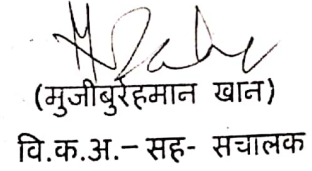 (मुजीबुरेहमान खान)
वि.क.अ.– सह- सचालक